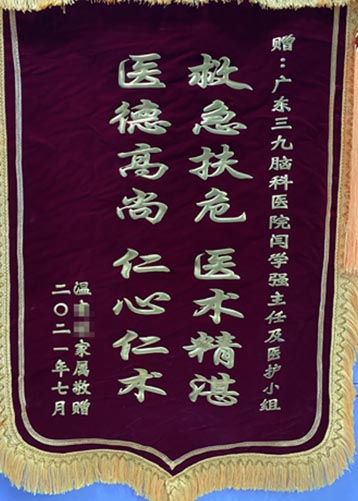 赠：广东三九脑科医院闫学强主任及医护小组
救急扶危 医术精湛
医德高尚 仁心仁术
温家属敬赠
二〇二一年七月